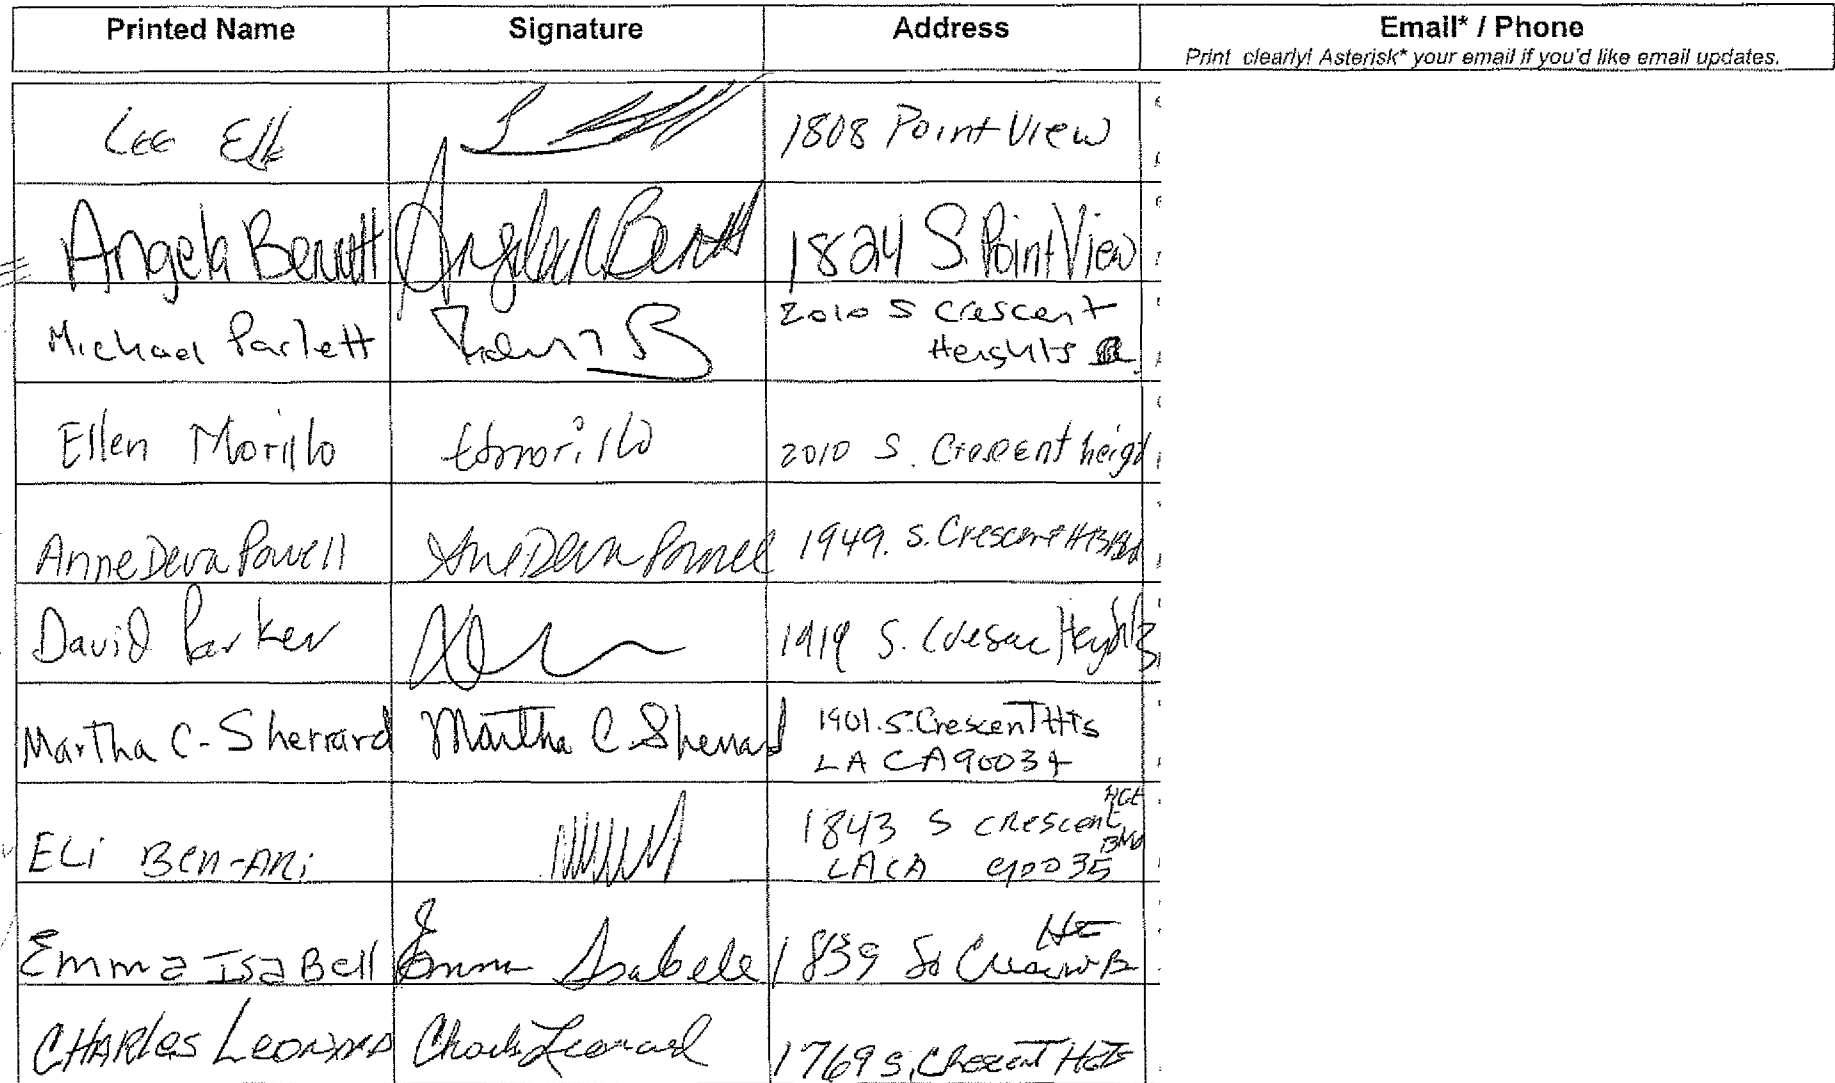 Printed Name Signature Address Email* / Phone
Print clearly! Asterisk* your email if you'd like email updates.
Lee 1808 Point View
Angela Bennett Angela Bennett 1824 S. Point View
Michael Parlett 2010 S Crescent
Heights
Ellen Morillo EMorillo 2010 S. Crescent heigh
Anne Deva Powell Anne Deva Powell 1949. S. Crescent Ht Blvd
David Parker 1919 S.
Martha C- Sherrard Martha C. Sherrard 1901. S. Crescent Hts
LA CA 90034
HGT
ELi Ben-ARi 1843 S CRescent
Blvd
LA CA 90035
Emma IsaBell Emma Isabell 1839 So
CHARles Leonard Charles Leonard 1769 S. Crescent HGTS